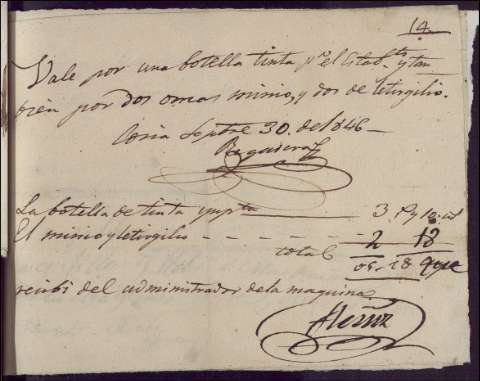 14.
Vale por una botella tinta pa. el Estabto. y tan
bien por dos onsas minio, y dos de letirgilio.
Coria Septre 30. de 1846 –
La botella de tinta ympta 3. Ps y 10.
El minio y letirgilio - - - - - - 2 18
total 05. 28 que
recibi del administrador de la maquina